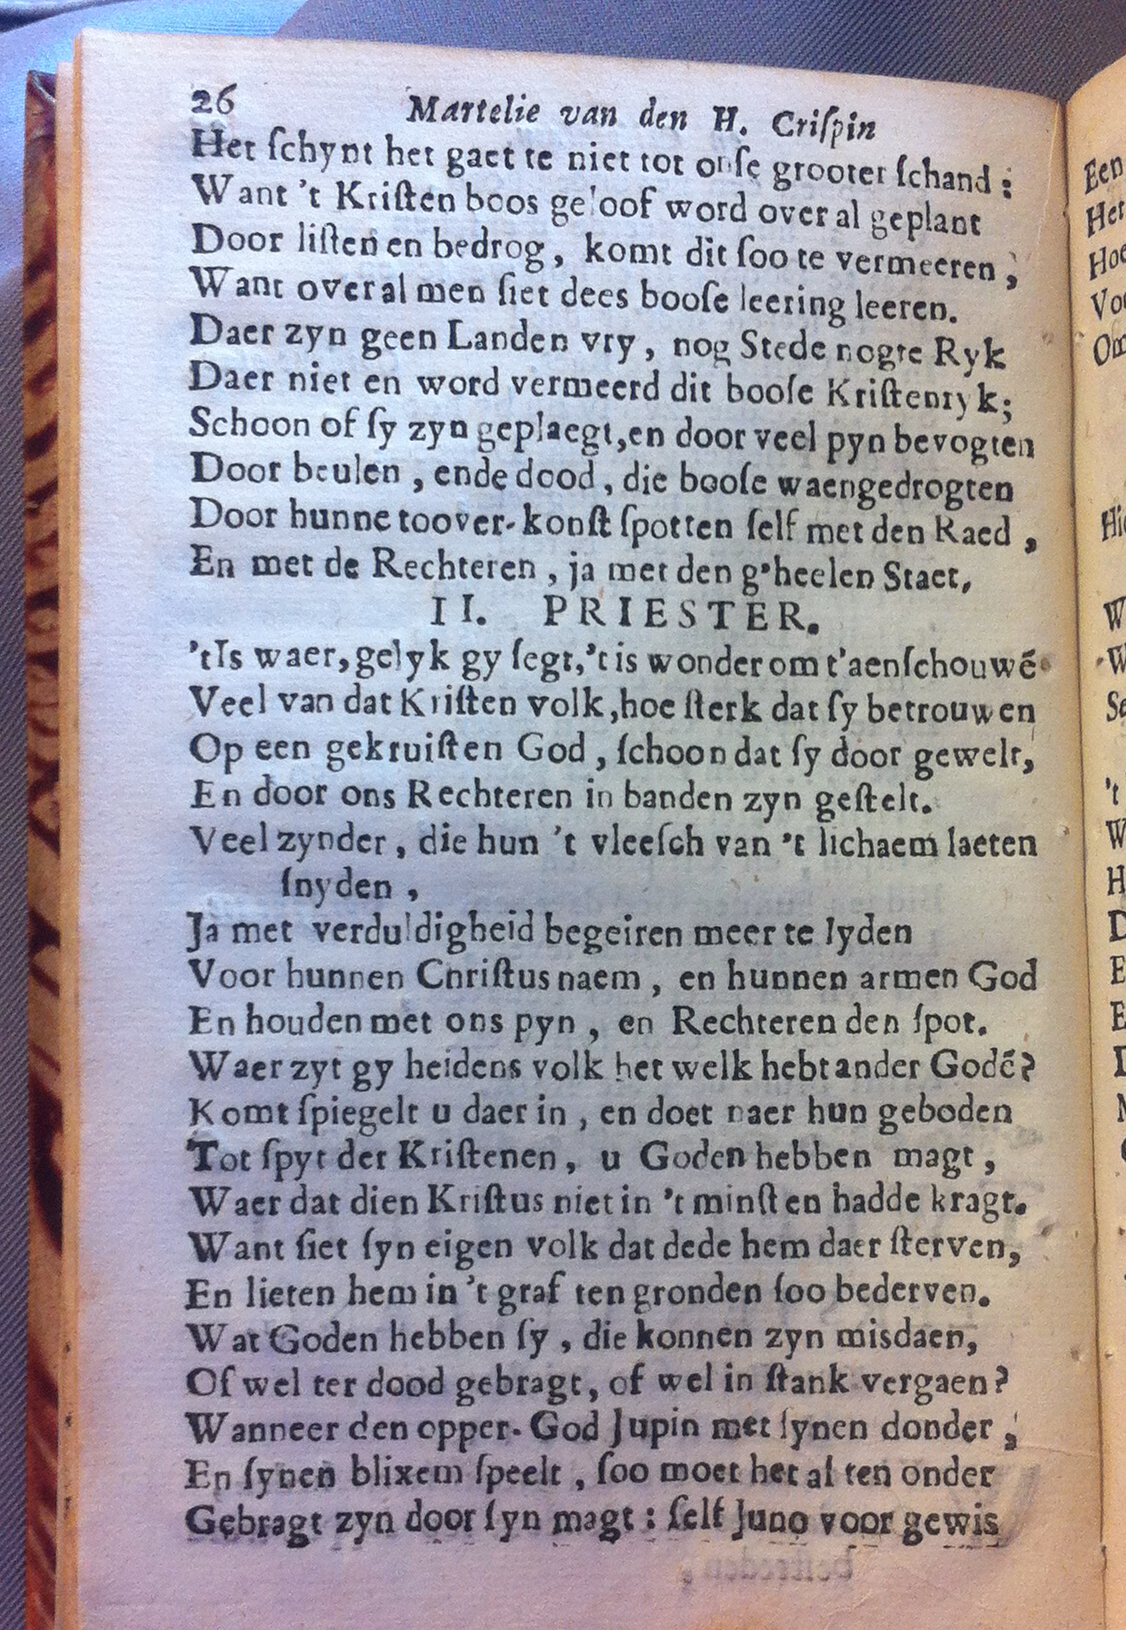 26 Martelie van den H. Criſpin
Het ſchynt het gaet te niet tot onſe grooter ſchand :
Want 't Kriſten boos geloof word over al geplant
Door liſten en bedrog, komt dit ſoo te vermeeren ;
Want over al men ſiet dees booſe leering leeren.
Daer zyn geen Landen vry, nog Stede nogte Ryk
Daer niet en word vermeerd dit booſe Kriſtenryk;
Schoon of ſy zyn geplaegt, en door veel pyn bevogten
Door beulen, ende dood, die booſe waengedrogten
Door hunne toover-konſt ſpotten ſelf met den Raed,
En met de Rechteren, ja met den g'heelen Staet,
II. PRIESTER.
't Is waer, gelyk gy ſegt, 't is wonder om t'aenſchouwē
Veel van dat Kriſten volk, hoe ſterk dat ſy betrouwen
Op een gekruiſten God, ſchoon dat ſy door gewelt,
En door ons Rechteren in banden zyn geſtelt.
Veel zynder, die hun 't vleeſch van 't lichaem laeten
ſnyden,
Ja met verduldigheid begeiren meer te lyden
Voor hunnen Chriſtus naem, en hunnen armen God
En houden met ons pyn, en Rechteren den ſpot.
Waer zyt gy heidens volk het welk hebt ander Godē?
Komt ſpiegelt u daer in, en doet naer hun geboden
Tot ſpyt der Kriſtenen, u Goden hebben magt,
Waer dat dien Kriſtus niet in 't minſt en hadde kragt.
Want ſiet ſyn eigen volk dat dede hem daer ſterven,
En lieten hem in 't graf ten gronden ſoo bederven.
Wat Goden hebben ſy, die konnen zyn misdaen,
Of wel ter dood gebragt, of wel in ſtank vergaen?
Wanneer den opper-God Jupin met ſynen donder ;
En ſynen blixem ſpeelt, ſoo moet het al ten onder
Gebragt zyn door ſyn magt : ſelf Juno voor gewis
Een
Her
Hoe
Vo
Om
Hi
W
W
Se
't
W
H
D
E
E